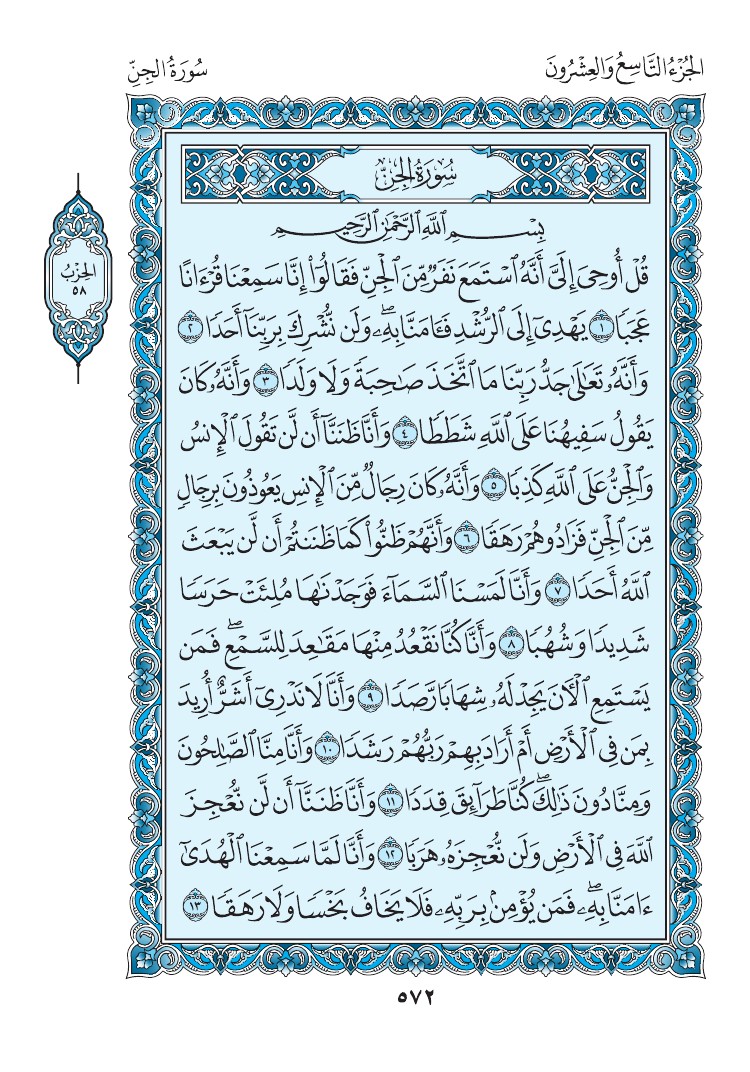 الجُزْءُ التَّاسِعُ وَالعِشْرُونَ
سُورَةُ الجِنِّ
سُورَةُ الجِنِّ
بِسْمِ ٱللَّهِ ٱلرَّحْمَٰنِ ٱلرَّحِيمِ
قُلْ أُوحِىَ إِلَىَّ أَنَّهُ ٱسْتَمَعَ نَفَرٌ مِّنَ ٱلْجِنِّ فَقَالُوٓا۟ إِنَّا سَمِعْنَا قُرْءَانًا
عَجَبًا ١ يَهْدِىٓ إِلَى ٱلرُّشْدِ فَـَٔامَنَّا بِهِۦۖ وَلَن نُّشْرِكَ بِرَبِّنَآ أَحَدًا ٢
وَأَنَّهُۥ تَعَٰلَىٰ جَدُّ رَبِّنَا مَا ٱتَّخَذَ صَٰحِبَةً وَلَا وَلَدًا ٣ وَأَنَّهُۥ كَانَ
يَقُولُ سَفِيهُنَا عَلَى ٱللَّهِ شَطَطًا ٤ وَأَنَّا ظَنَنَّآ أَن لَّن تَقُولَ ٱلْإِنسُ
وَٱلْجِنُّ عَلَى ٱللَّهِ كَذِبًا ٥ وَأَنَّهُۥ كَانَ رِجَالٌ مِّنَ ٱلْإِنسِ يَعُوذُونَ بِرِجَالٍ
مِّنَ ٱلْجِنِّ فَزَادُوهُمْ رَهَقًا ٦ وَأَنَّهُمْ ظَنُّوا۟ كَمَا ظَنَنتُمْ أَن لَّن يَبْعَثَ
ٱللَّهُ أَحَدًا ٧ وَأَنَّا لَمَسْنَا ٱلسَّمَآءَ فَوَجَدْنَٰهَا مُلِئَتْ حَرَسًا
شَدِيدًا وَشُهُبًا ٨ وَأَنَّا كُنَّا نَقْعُدُ مِنْهَا مَقَٰعِدَ لِلسَّمْعِۖ فَمَن
يَسْتَمِعِ ٱلْـَٔانَ يَجِدْ لَهُۥ شِهَابًا رَّصَدًا ٩ وَأَنَّا لَا نَدْرِىٓ أَشَرٌّ أُرِيدَ
بِمَن فِى ٱلْأَرْضِ أَمْ أَرَادَ بِهِمْ رَبُّهُمْ رَشَدًا ١٠ وَأَنَّا مِنَّا ٱلصَّٰلِحُونَ
وَمِنَّا دُونَ ذَٰلِكَۖ كُنَّا طَرَآئِقَ قِدَدًا ١١ وَأَنَّا ظَنَنَّآ أَن لَّن نُّعْجِزَ
ٱللَّهَ فِى ٱلْأَرْضِ وَلَن نُّعْجِزَهُۥ هَرَبًا ١٢ وَأَنَّا لَمَّا سَمِعْنَا ٱلْهُدَىٰٓ
ءَامَنَّا بِهِۦۖ فَمَن يُؤْمِنۢ بِرَبِّهِۦ فَلَا يَخَافُ بَخْسًا وَلَا رَهَقًا ١٣
الحِزْبُ
٥٨
٥٧٢